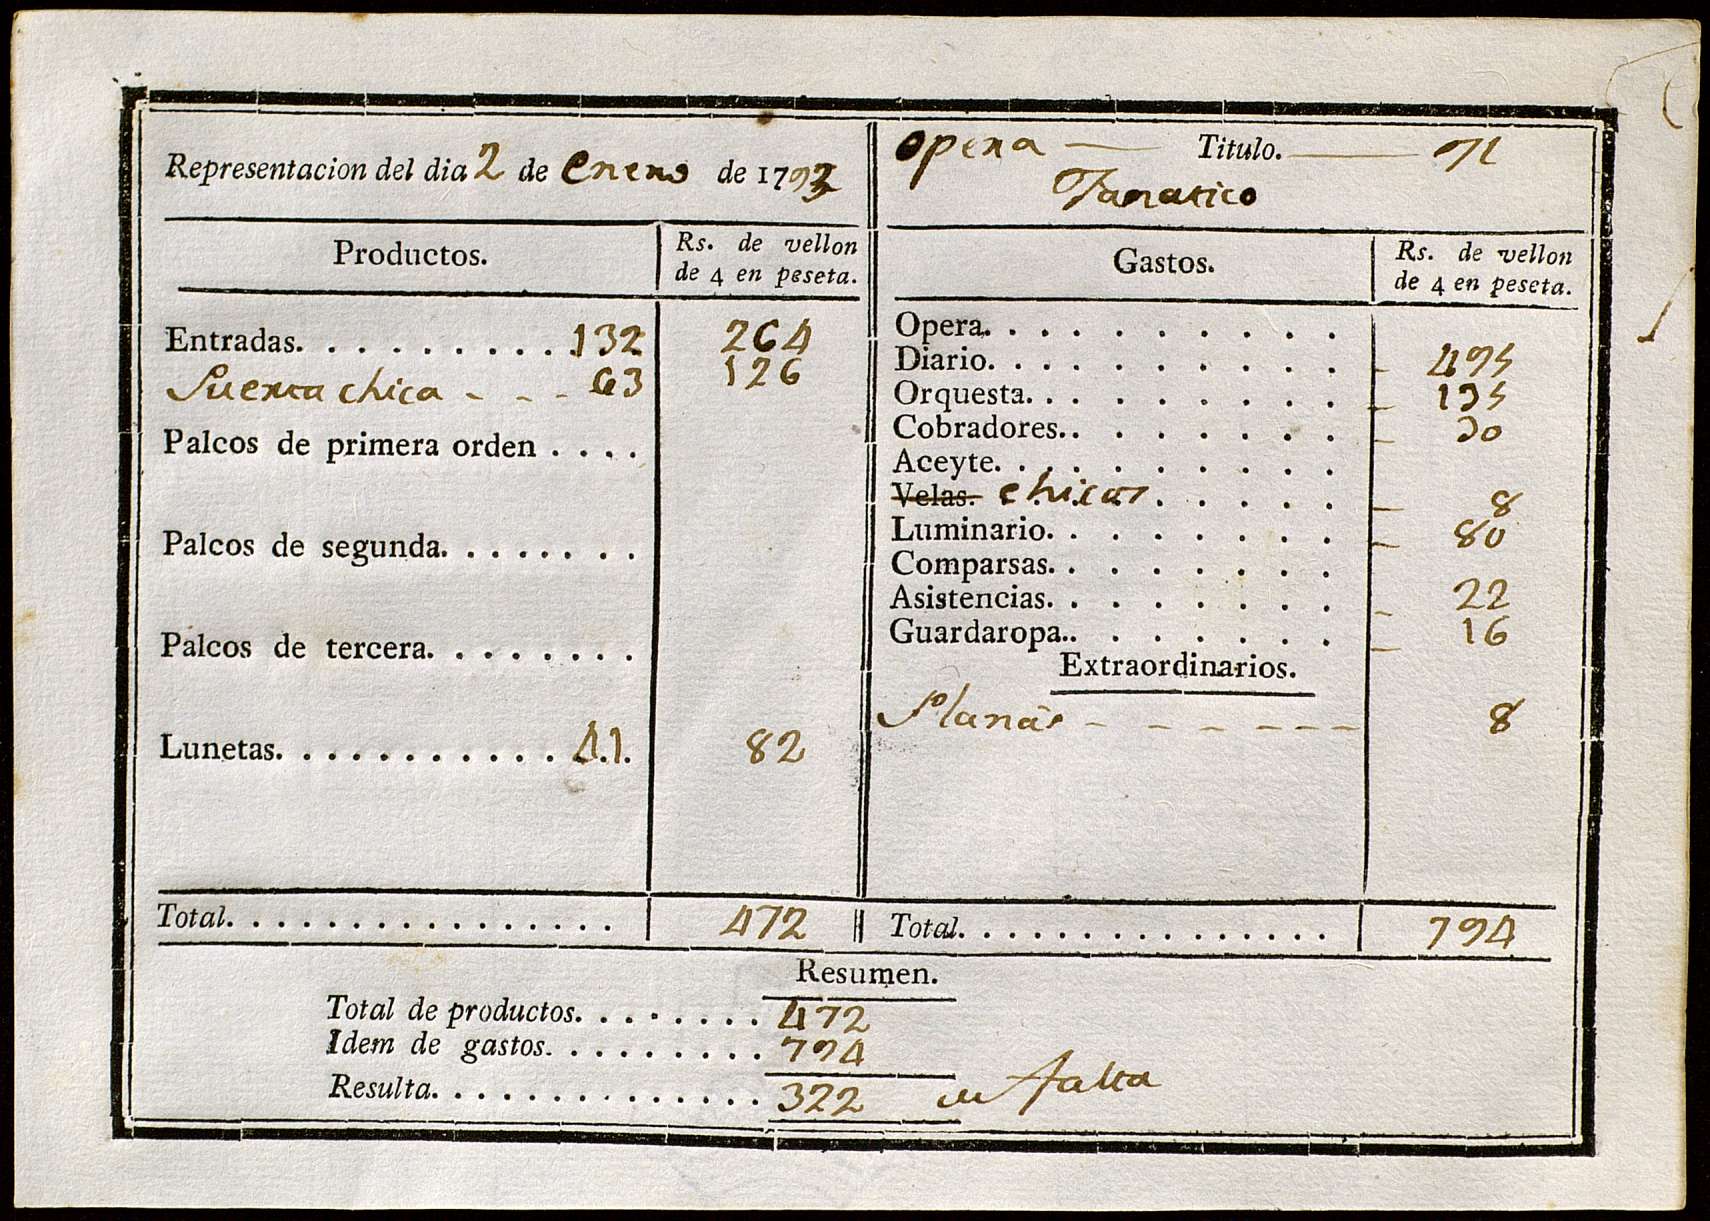 Representacion del dia 2 de Enero de 1793
Opera — Titulo. — El
Fanatico
Productos. Rs. de vellon de 4 en peseta.
Entradas. . . . . . . . . . . 132 264
Puerta chica - - - 63 126
Palcos de primera orden . . . .
Palcos de segunda. . . . . . . .
Palcos de tercera. . . . . . . . .
Lunetas. . . . . . . . . . . . 41. 82
Total. . . . . . . . . . . . . . . . 472
Gastos. Rs. de vellon de 4 en peseta.
Opera. . . . . . . . . .
Diario. . . . . . . . . . - 495
Orquesta. . . . . . . . . - 135
Cobradores. . . . . . . . - 30
Aceyte. . . . . . . . . .
Velas. chicas . . . . . - 8
Luminario. . . . . . . . - 80
Comparsas. . . . . . . .
Asistencias. . . . . . . . - 22
Guardaropa. . . . . . . . - 16
Extraordinarios.
Planas - - - - - - - 8
Total. . . . . . . . . . . . . . . . 794
Resumen.
Total de productos. . . . . . . . 472
Idem de gastos. . . . . . . . . 794
Resulta. . . . . . . . . . . . . . 322 de falta